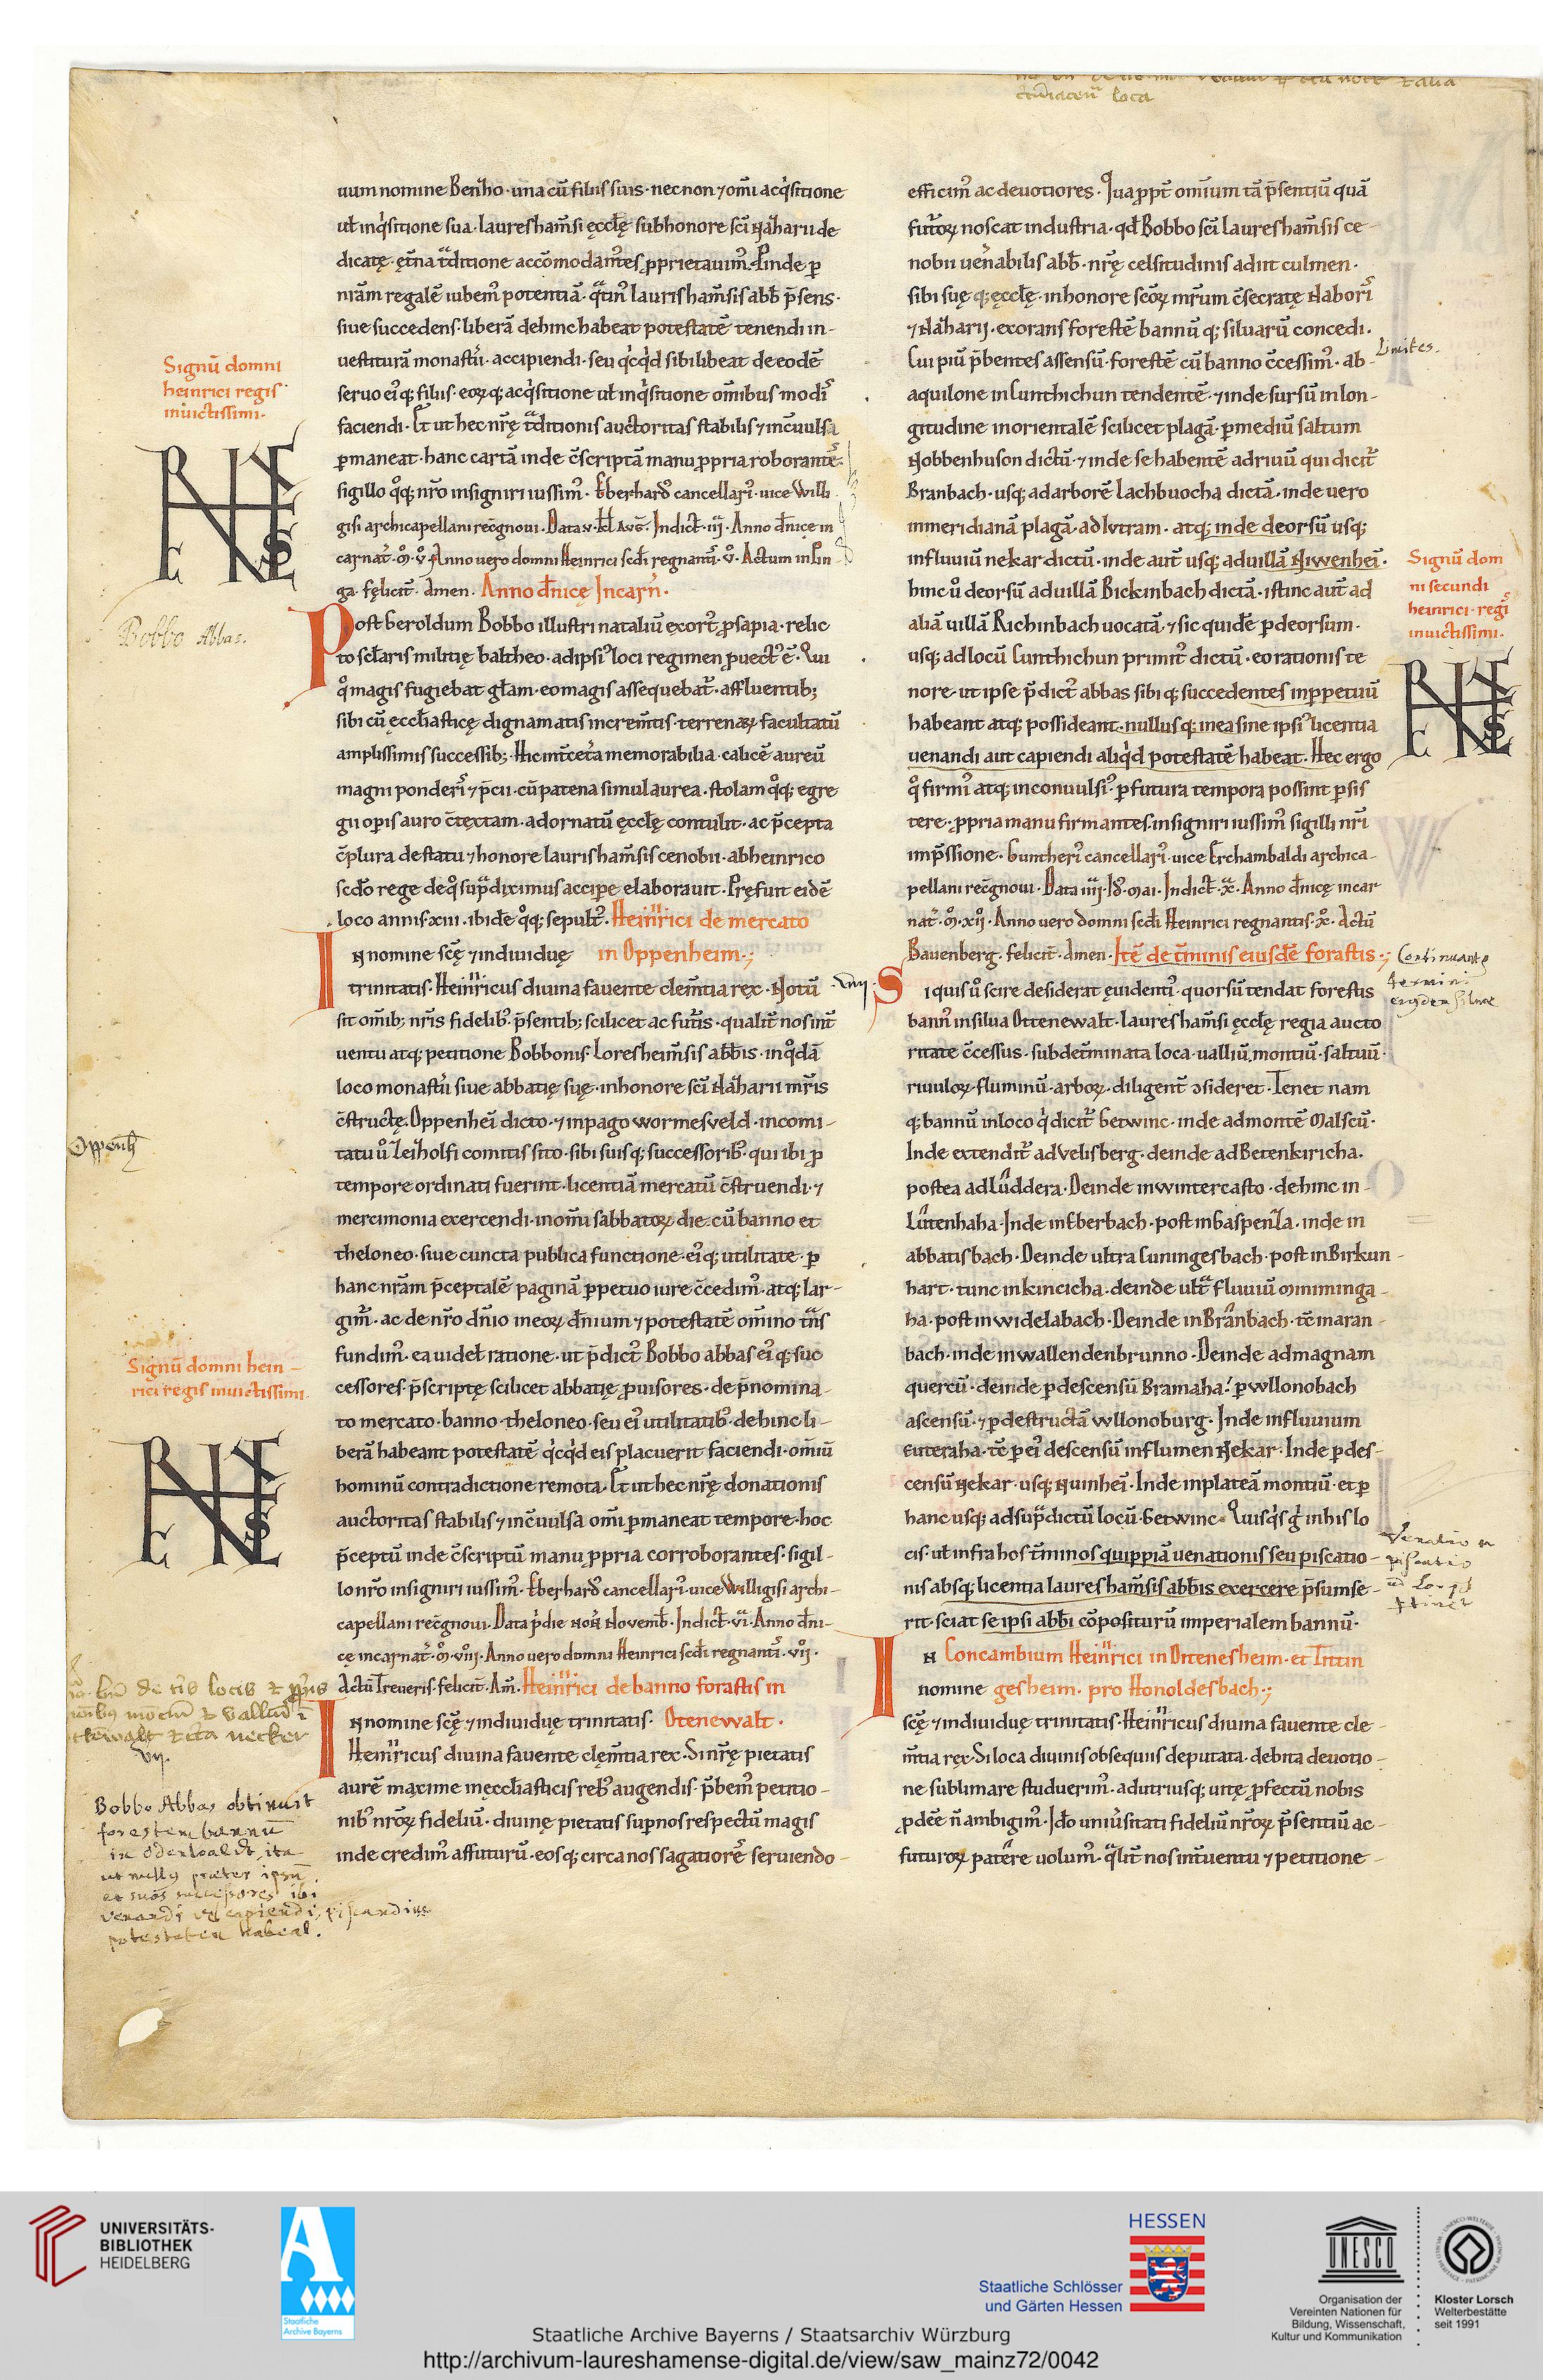 uum nomine Benńho · una cū filiis suis · necnon ⁊ om̄i acq̇sitione
ut̄ inq̇sitione sua · lauresham̄si ęccłę sub honore sc̄i Nazharii de
dicatę · ęt̄na t͛ditione accōmodam̄tes ꝓprietauim᷒ · Proinde ꝑ
nr̄am regalē iubem᷒ potentiā · q͛tin᷒ laurisham̄sis abb̄ p̄sens ·
siue succedens · liberā dehinc habeat potestatē tenendi in-
uestiturā monast̄ii · accipiendi · seu q̇cq̇d sibi libeat de eodē
seruo ei᷒q; filiis · eorꝝq; acq̇sitione ut̄ inq̇sitione om̄ibus modis
faciendi · Et ut hec nr̄ę t͛ditionis auctoritas stabilis ⁊ inc̄uulsa
ꝑmaneat · hanc cartā inde c̄scriptā manu ꝓpria roborantes
sigillo q̊q; nr̄o insigniri iussim᷒ · Eberhard᷒ cancellari᷒ · uice Willi
gisi archicapellani rec̄gnoui · Data v · kł Avḡ · Indict̄ · iij · Anno dn̄icę in
carnat̄ · M̊ · v̊ · Anno uero domni Heinrici scd̄i regnantis · v̊ · Actum in Pin
ga · fęlicit̄ · Amen · Anno dn̄icę Incarn̄ ·
Post Geroldum Bobbo illustri nataliū exort᷒ ꝓsapia · relic
to sęclaris militię baltheo · adipsi᷒ loci regimen ꝓuect᷒ ē · Qui
q̊ magis fugiebat gł̄am · eo magis assequebat̄ · affluentib;
sibi cū ęccłiasticę dignam atis increm̄tis · terrenarꝝ facultatū
amplissimis successib; · Hic int̄ cet̄a memorabilia · calicē aureū
magni ponderis ⁊ p̄cii · cū patena simul aurea · stolam q̊q; egre
gii oꝑis auro c̄tectam · ad ornatū ęccłę contulit · ac p̄cepta
c̄plura de statu ⁊ honore laurisham̄sis cenobii · ab heinrico
scd̄o rege de q̊ sup͛ diximus accipe elaborauit · Pręfuit eidē
loco annis · xiii · ibidē q̊q; sepult᷒ · Heinrici de mercato
In nomine sc̄ę ⁊ indiuiduę in Oppenheim ·;
trinitatis · Heinricus diuina fauente clem̄tia rex · Notū
sit om̄ib; nr̄is fidelib᷒ · p̄sentib; scilicet ac fut̄is · qualit̄ nos int̄
uentu atq; petitione Bobbonis · Loresheim̄sis abb̄is · in q̊dā
loco monast̄ii siue abbatię suę · in honore sc̄i Nazharii mr̄is
c̄structę · Oppenheī dicto · ⁊ in pago wormesveld · in comi-
tatu ů Zeizholfi comitis sito · sibi suisq; successorib᷒ · qui ibi ꝓ
tempore ordinati fuerint · licentiā mercatū c̄struendi · ⁊
mercimonia exercendi · in om̄i sabbatorꝝ die · cū banno et
theloneo · siue cuncta publica functione · ei᷒q; utilitate · ꝑ
hanc nr̄am p̄ceptalē paginā ꝑpetuo iure c̄cedim᷒ · atq; lar-
gim᷒ · ac de nr̄o dn̄io in eorꝝ dn̄ium ⁊ potestatē om̄ino t͛ns
fundim᷒ · ea uidet̄ ratione · ut p̄dict᷒ Bobbo abbas ei᷒q; suc
cessores · p̄scriptę scilicet abbatię ꝓuisores · de p̄nomina-
to mercato · banno · theloneo · seu ei᷒ utilitatib᷒ · dehinc li-
berā habeant potestatē q̇cq̇d eis placuerit faciendi · om̄iū
hominū contradictione remota · Et ut hec nr̄ę donationis
auctoritas stabilis ⁊ inc̄uulsa om̄i ꝑmaneat tempore · hoc
p̄ceptū inde c̄scriptū manu ꝓpria corroborantes · sigil-
lo nr̄o insigniri iussim᷒ · Eberhard᷒ cancellari᷒ · uice Willigisi archi-
capellani rec̄gnoui · Data ṗdie Noñ Novemb̄ · Indict̄ · vi · Anno dn̄i-
cę incarnat̄ · M̊ · viij · Anno uero domni Heinrici scd̄i regnantis · vij ·
Actū Treueris · felicit̄ · Am̄ · Heinrici de banno forastis in
In nomine sc̄ę ⁊ indiuiduę trinitatis · Otenewalt ·
Heinricus diuina fauente clęm̄tia rex · Si nr̄ę pietatis
aurē maxime in ęccłiasticis reb᷒ augendis · p̄bem᷒ petitio-
nib᷒ nr̄orꝝ fideliū · diuinę pietatis sup nos respectū magis
inde credim᷒ affuturū · eosq; circa nos sagatiores seruiendo-
efficim᷒ ac deuotiores · Qua ꝓpt̄ omnium tā p̄sentiū quā
fut̄orꝝ noscat industria · qd̄ Bobbo sc̄i lauresham̄sis ce-
nobii uen̄abilis abb̄ · nr̄ę celsitudinis adiit culmen ·
sibi suę q; ęccłę · in honore sc̄orꝝ mr̄um c̄secratę Naboris
⁊ Nazharij · exorans forestē bannū q; siluarū concedi ·
Cui piū p̄bentes assensū · forestē cū banno c̄cessim᷒ · ab
aquilone in Lunthichun tendentē · ⁊ inde sursū in lon-
gitudine in orientalē scilicet plagā · ꝑ mediū saltum
Hobbenhuson dictū · ⁊ inde se habentē ad riuū qui dicit̄
Branbach · usq; ad arborē lachbuocha dictā · inde uero
in meridianā plagā · ad lvtram · atq; inde deorsū usq;
in fluuiū nekar dictū · inde aut̄ usq; ad uillā Niwenheī ·
hinc ů deorsū ad uillā Bickinbach dictā · istinc aut̄ ad
aliā uillā Richinbach uocatā · ⁊ sic quidē ꝑ deorsum ·
usq; ad locū Lunthichun primit᷒ dictū · eo rationis te
nore ut ipse p̄dict᷒ abbas sibi q; succedentes in ꝑpetuū
habeant atq; possideant · nullusq; in ea sine ipsi᷒ licentia
uenandi aut capiendi aliq̇d potestatē habeat · Hec ergo
q̊ firmi᷒ atq; inconuulsi᷒ · ꝑ futura tempora possint ꝑsis
tere · ꝓpria manu firmantes · insigniri iussim᷒ sigilli nr̄i
imp̄ssione · Guntheri᷒ cancellari᷒ · uice Erchambaldi archica-
pellani rec̄gnoui · Data iiij · Id᷒ · Mai · Indict̄ · x · Anno dn̄icę incar
nat̄ · M̊ · xij · Anno uero domni scd̄i Heinrici regnantis · x̊ · Actū
Bauenberg · felicit̄ · Amen · Itē de t̄minis eiusdē forastis ·;
Si quis ů scire desiderat ęuidenti᷒ · quorsū tendat forestis
bann᷒ in silua Ottenewalt · lauresham̄si ęccłę regia aucto
ritate c̄cessus · subdet̄minata loca · ualliū, montiū · saltuū ·
riuulorꝝ · fluminū · arborꝝ · diligent̄ ↄsideret · Tenet nam
q; bannū in loco q̇ dicit̄ Getwinc · inde ad montē Malscū ·
Inde extendit̄ ad velisberg · deinde ad Betenkiricha ·
postea ad Lůddera · Deinde in wintercasto · dehinc in-
Lůtenhaha · Inde in Eberbach · post in Gaspenza · inde in
abbatisbach · Deinde ultra Cuningesbach · post in Birkun-
hart · tunc in kincicha · deinde ult͛ fluuiū Miminga-
ha · post in widelabach · Deinde in Branbach · tē in aran-
bach · inde in wallendenbrunno · Deinde ad magnam
quercū · deinde ꝑ descensū Bramaha · ꝑ wllonobach
ascensū · ⁊ ꝑ destructā wllonoburg · Inde in fluuium
Euteraha · tē ꝑ ei᷒ descensū in flumen Nekar · Inde ꝑ des-
censū Nekar · usq; Nuinheī · Inde in plateā montiū · et ꝑ
hanc usq; ad sup͛dictū locū · Getwinc · Quisq̇s g̊ in his lo
cis · ut̄ infra hos t̄minos quippiā uenationis seu piscatio-
nis absq; licentia lauresham̄sis abb̄is exercere p̄sumse-
rit · sciat se ipsi abb̄i cōpositurū imperialem bannū ·
In Concambium Heinrici in Ottenesheim · et Tittin
nomine gesheim · pro Honoldesbach ·;
sc̄ę ⁊ indiuiduę trinitatis · Heinricus diuina fauente cle-
m̄tia rex · Si loca diuinis obsequiis deputata · debita deuotio-
ne sublimare studuerim᷒ · ad utriusq; uitę ꝓfectū nobis
ꝓdēe n̄ ambigim᷒ · Ido uniu̓sitati fideliū nr̄orꝝ p̄sentiū ac-
futurorꝝ patēre uolum᷒ · q͛lit̄ nos int̄uentu ⁊ petitione-
Signū domni
heinrici regis
inuictissimi ·
Bobbo Abbas.
Oppenh
Signū domni hein-
rici regis inuictissimi ·
vij.
Bobbo Abbas obtinuit
forestem bannū
in Odenwaldt, ita
ut nullus praeter ipsū
et suos successores ibi
venandi vel capiendi, piscandive
potestatem habeat.
ctūiacen̄ loca
Limites.
Signū dom
ni secundi
heinrici · regis
inuictissimi ·
viij
Continuantur
termini
eiusdem siluae
Venatio
piscatio
UNIVERSITÄTS-
BIBLIOTHEK
HEIDELBERG
Staatliche
Archive Bayerns
HESSEN
Staatliche Schlösser
und Gärten Hessen
UNESCO
Organisation der
Vereinten Nationen für
Bildung, Wissenschaft,
Kultur und Kommunikation
Kloster Lorsch
Welterbestätte
seit 1991
Staatliche Archive Bayerns / Staatsarchiv Würzburg
http://archivum-laureshamense-digital.de/view/saw_mainz72/0042